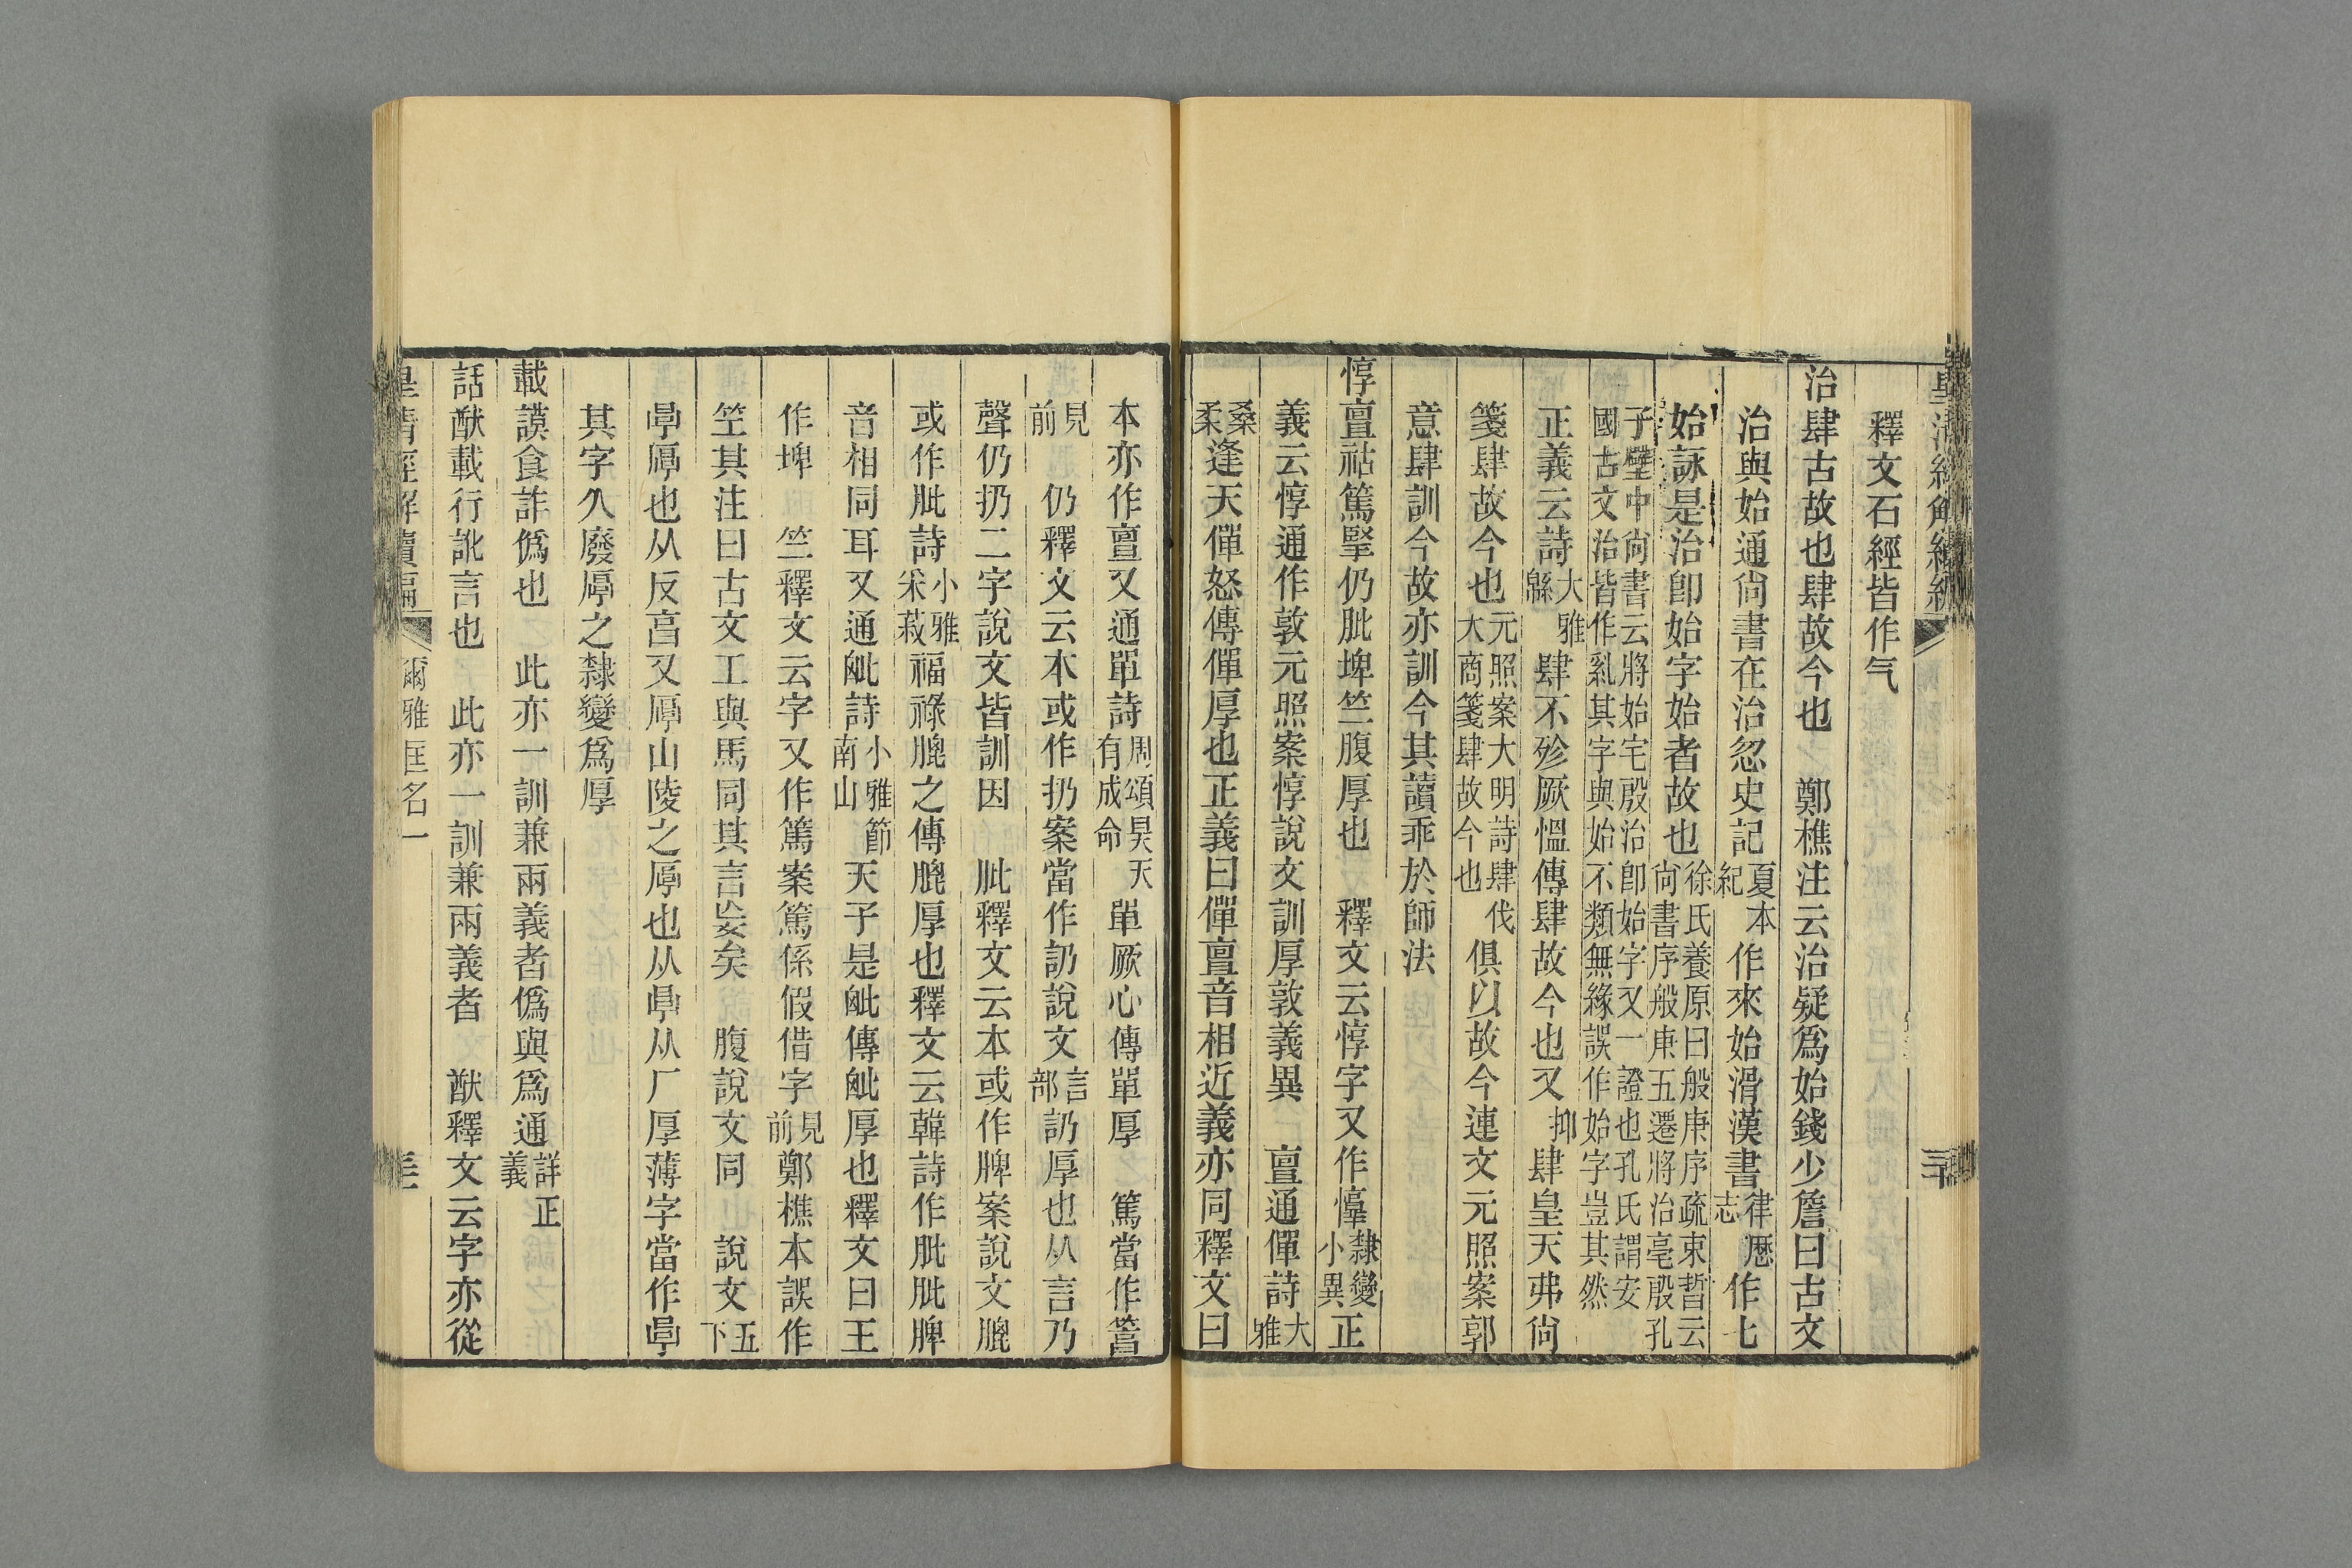 皇清經解續編
釋文石經皆作气
治肆古故也肆故今也　鄭樵注云治疑爲始錢少詹曰古文
治與始通尙書在治忽史記夏本紀作來始滑漢書律厯志作七
始詠是治卽始字始者故也徐氏養原曰般庚序疏束晳云尙書序般庚五遷將治亳殷孔
子壁中尙書云將始宅殷治卽始字又一證也孔氏謂安國古文治皆作亂其字與始不類無緣誤作始字豈其然
正義云詩大雅緜肆不殄厥慍傳肆故今也又抑肆皇天弗尙
箋肆故今也元照案大明詩肆伐大商箋肆故今也俱以故今連文元照案郭
意肆訓今故亦訓今其讀乖於師法
惇亶祜篤掔仍肶埤竺腹厚也　釋文云惇字又作憞隸變小異正
義云惇通作敦元照案惇說文訓厚敦義異　亶通僤詩大雅
桑柔逢天僤怒傳僤厚也正義曰僤亶音相近義亦同釋文曰
本亦作亶又通單詩周頌昊天有成命單厥心傳單厚　篤當作䈞
見前　仍釋文云本或作扔案當作訒說文言部訒厚也从言乃
聲仍扔二字說文皆訓因　肶釋文云本或作脾案說文膍
或作肶詩小雅采菽福祿膍之傳膍厚也釋文云韓詩作肶肶脾
音相同耳又通毗詩小雅節南山天子是毗傳毗厚也釋文曰王
作埤　竺釋文云字又作篤案篤係假借字見前鄭樵本誤作
笁其注曰古文工與馬同其言妄矣　腹說文同　說文五下
㫗厚也从反亯又厚山陵之厚也从㫗从厂厚薄字當作㫗
其字久廢厚之隸變爲厚
載謨食詐僞也　此亦一訓兼兩義者僞與爲通詳正義
話猷載行訛言也　此亦一訓兼兩義者　猷釋文云字亦從
皇清經解續編　爾雅匡名一